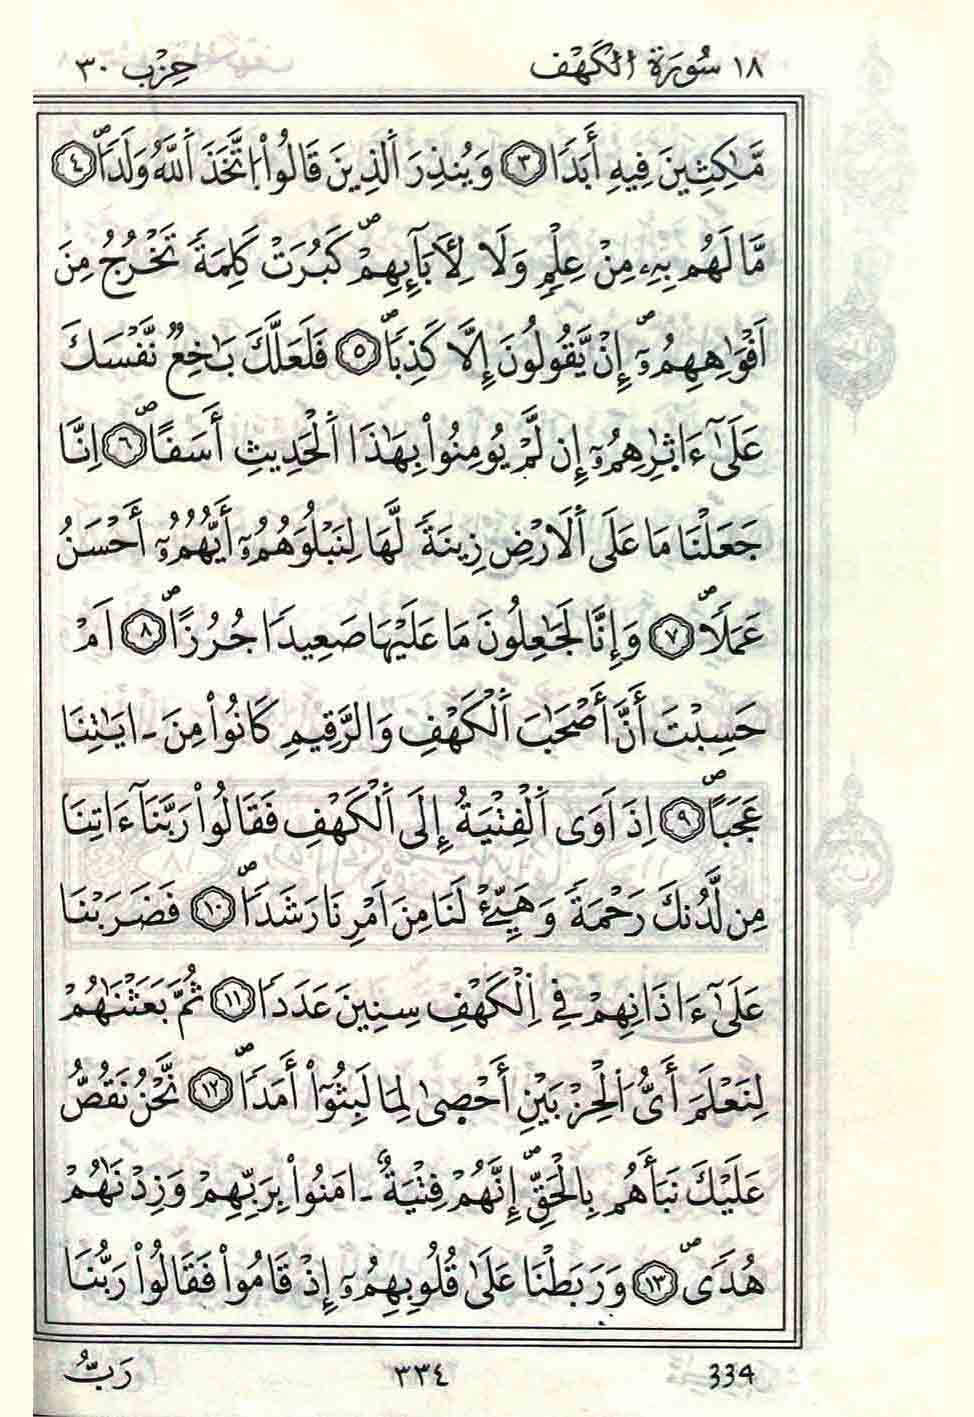 ١٨ سُورَةُ الكَهْف حِزْب ٣٠
مَّٰكِثِينَ فِيهِ أَبَدًا ٣ وَيُنذِرَ ٱلذِينَ قَالُواْ ٱتَّخَذَ ٱللَّهُ وَلَدًاۖ ٤
مَّا لَهُم بِهِۦ مِنْ عِلْمٍ وَلَا لِأَبَآئِهِمْۖ كَبُرَتْ كَلِمَةً تَخْرُجُ مِنَ
اَفْوَٰهِهِمُۥٓۖ إِنْ يَّقُولُونَ إِلَّا كَذِبًاۖ ٥ فَلَعَلَّكَ بَٰخِعٌ نَّفْسَكَ
عَلَىٰٓ ءَاثٰ۪رِهِمُۥٓ إِن لَّمْ يُومِنُواْ بِهَٰذَا ٱلْحَدِيثِ أَسَفًاۖ ٦ اِنَّا
جَعَلْنَا مَا عَلَى ٱلَارْضِ زِينَةً لَّهَا لِنَبْلُوَهُمُۥٓ أَيُّهُمُۥٓ أَحْسَنُ
عَمَلًاۖ ٧ وَإِنَّا لَجَٰعِلُونَ مَا عَلَيْهَا صَعِيدًا جُرُزًاۖ ٨ اَمْ
حَسِبْتَ أَنَّ أَصْحَٰبَ ٱلْكَهْفِ وَالرَّقِيمِ كَانُواْ مِنَ ـ ايَٰتِنَا
عَجَبًاۖ ٩ اِذَ اَوَى ٱلْفِتْيَةُ إِلَى ٱلْكَهْفِ فَقَالُواْ رَبَّنَآ ءَاتِنَا
مِن لَّدُنكَ رَحْمَةً وَهَيِّئْ لَنَا مِنَ اَمْرِنَا رَشَدًاۖ ١٠ فَضَرَبْنَا
عَلَىٰٓ ءَاذَانِهِمْ فِے اِ۬لْكَهْفِ سِنِينَ عَدَدًا ١١ ثُمَّ بَعَثْنَٰهُمْ
لِنَعْلَمَ أَىُّ ٱلْحِزْبَيْنِ أَحْصٰ۪ى لِمَا لَبِثُوٓاْ أَمَدًاۖ ١٢ نَّحْنُ نَقُصُّ
عَلَيْكَ نَبَأَهُم بِالْحَقِّۖ إِنَّهُمْ فِتْيَةٌ ـ امَنُواْ بِرَبِّهِمْ وَزِدْنَٰهُمْ
هُدًىۖ ١٣ وَرَبَطْنَا عَلَىٰ قُلُوبِهِمُۥٓ إِذْ قَامُواْ فَقَالُواْ رَبُّنَا
334 ٣٣٤ رَبُّ